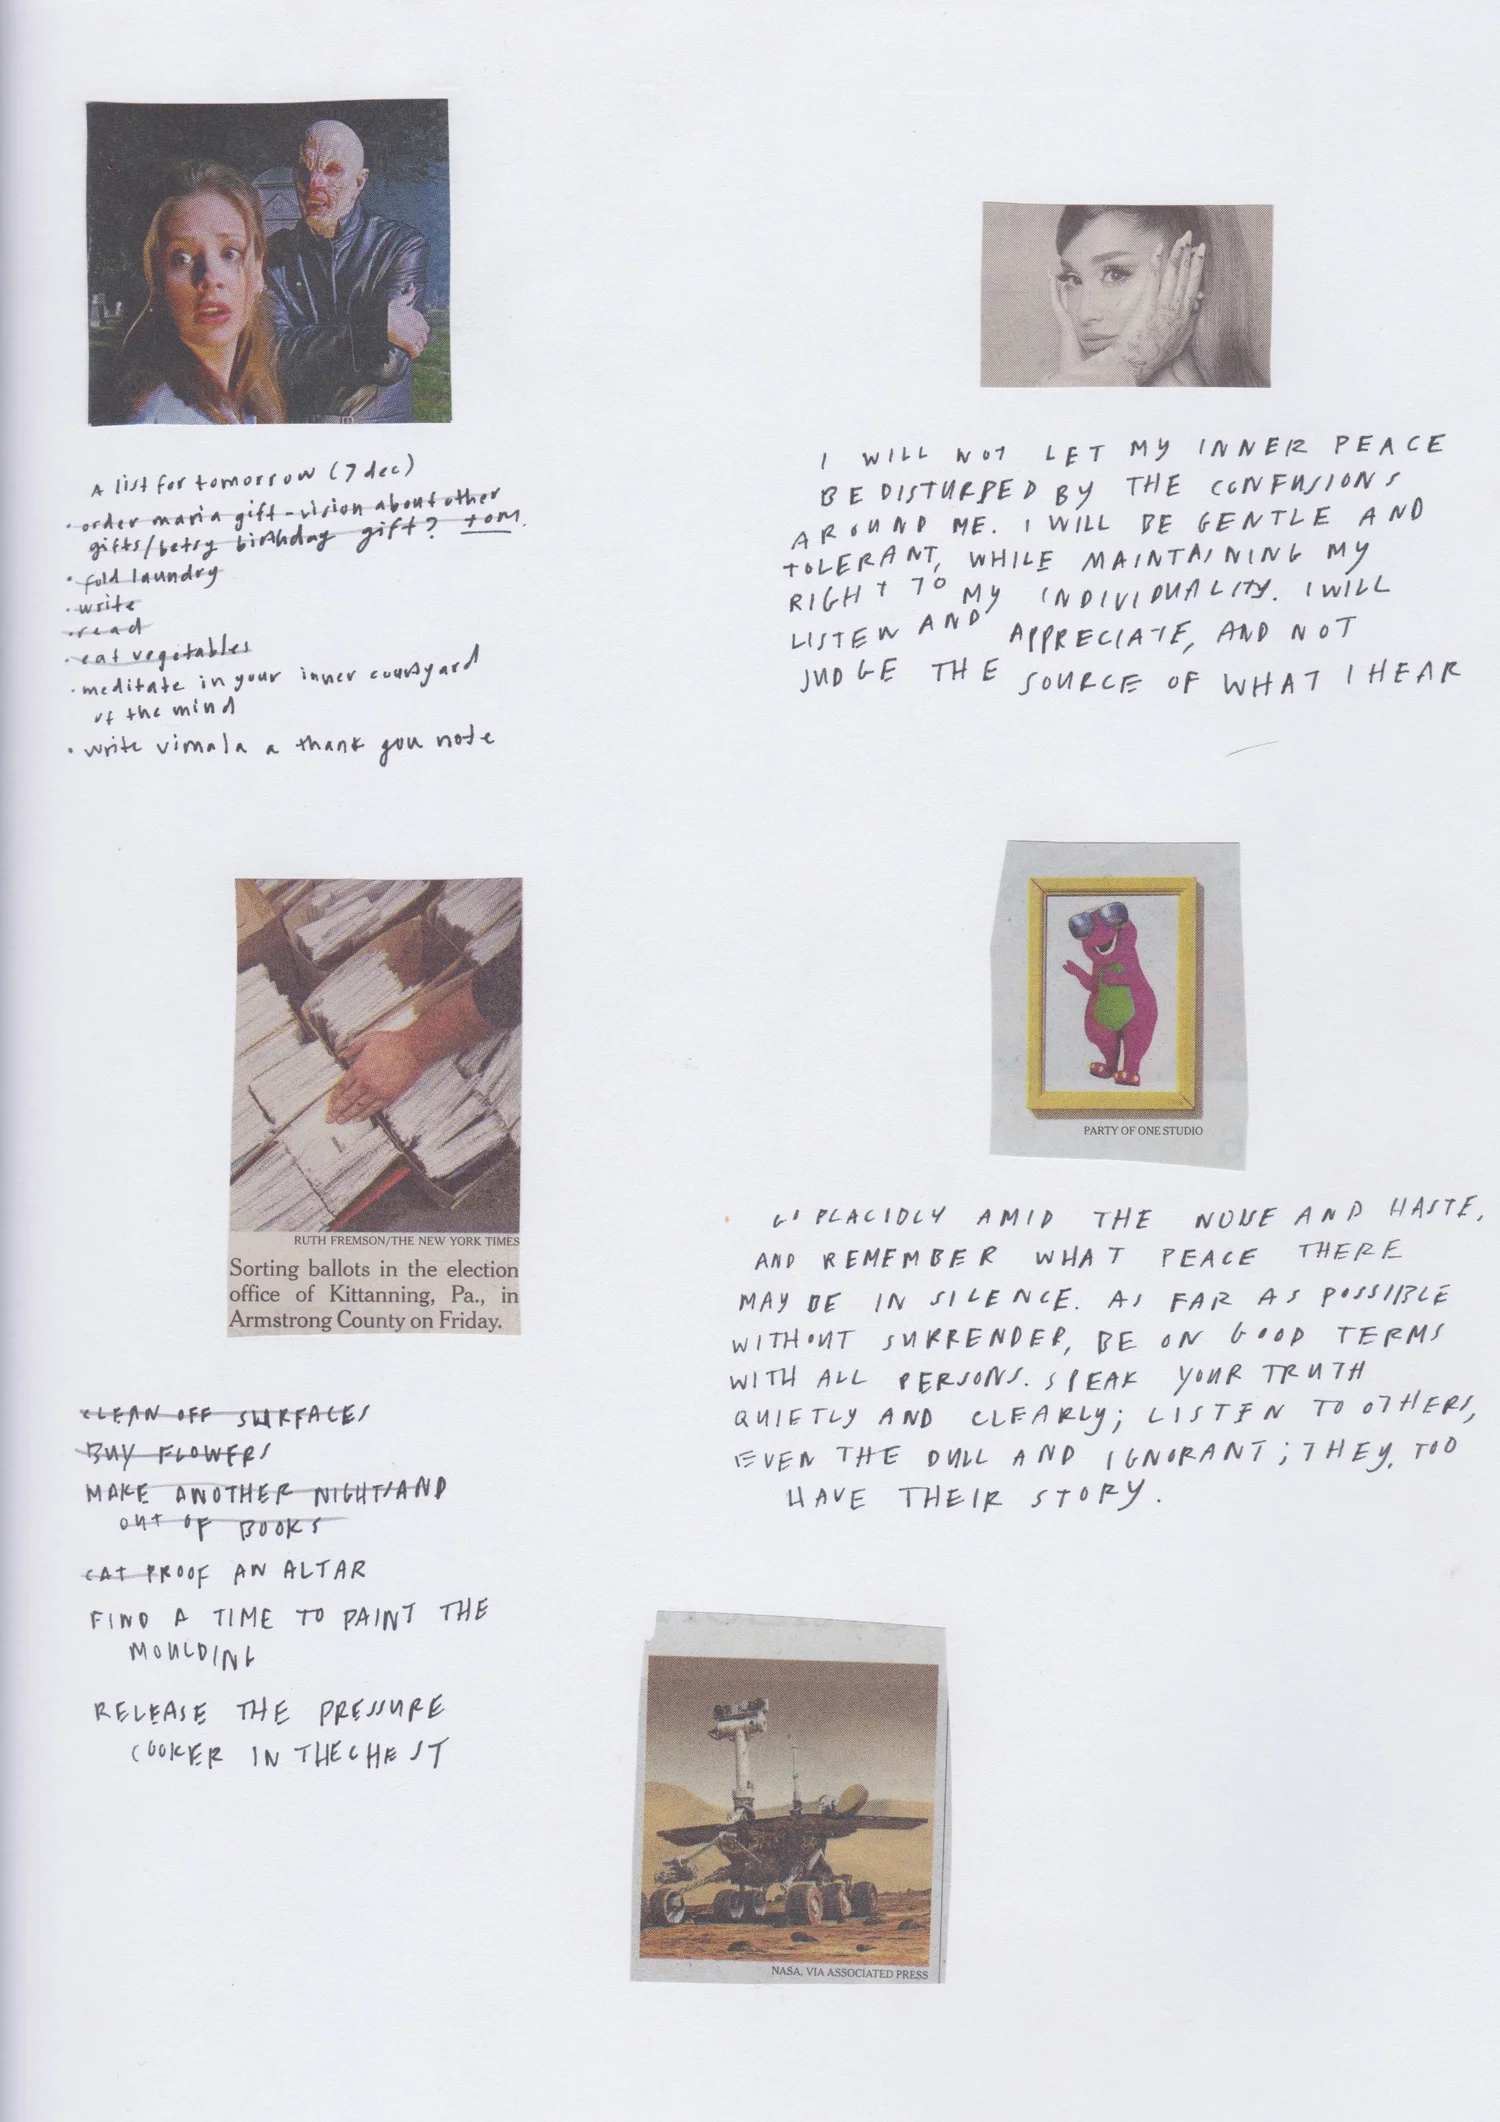 A list for tomorrow (7 dec)
• order maria gift - vision about other
gifts/betsy birthday gift? tom.
• fold laundry
• write
• read
• eat vegetables
• meditate in your inner courtyard
of the mind
• write vimala a thank you note
I WILL NOT LET MY INNER PEACE
BE DISTURPED BY THE CONFUSIONS
AROUND ME. I WILL BE GENTLE AND
TOLERANT, WHILE MAINTAINING MY
RIGHT TO MY INDIVIDUALITY. I WILL
LISTEN AND APPRECIATE, AND NOT
JUDGE THE SOURCE OF WHAT I HEAR
RUTH FREMSON/THE NEW YORK TIMES
Sorting ballots in the election
office of Kittanning, Pa., in
Armstrong County on Friday.
PARTY OF ONE STUDIO
CLEAN OFF SURFACES
BUY FLOWERS
MAKE ANOTHER NIGHTSAND
OUT OF BOOKS
CAT PROOF AN ALTAR
FIND A TIME TO PAINT THE
MOULDING
RELEASE THE PRESSURE
COOKER IN THE CHEST
GO PLACIDLY AMID THE NOISE AND HASTE,
AND REMEMBER WHAT PEACE THERE
MAY BE IN SILENCE. AS FAR AS POSSIBLE
WITHOUT SURRENDER, BE ON GOOD TERMS
WITH ALL PERSONS. SPEAK YOUR TRUTH
QUIETLY AND CLEARLY; LISTEN TO OTHERS,
EVEN THE DULL AND IGNORANT; THEY, TOO
HAVE THEIR STORY.
NASA, VIA ASSOCIATED PRESS